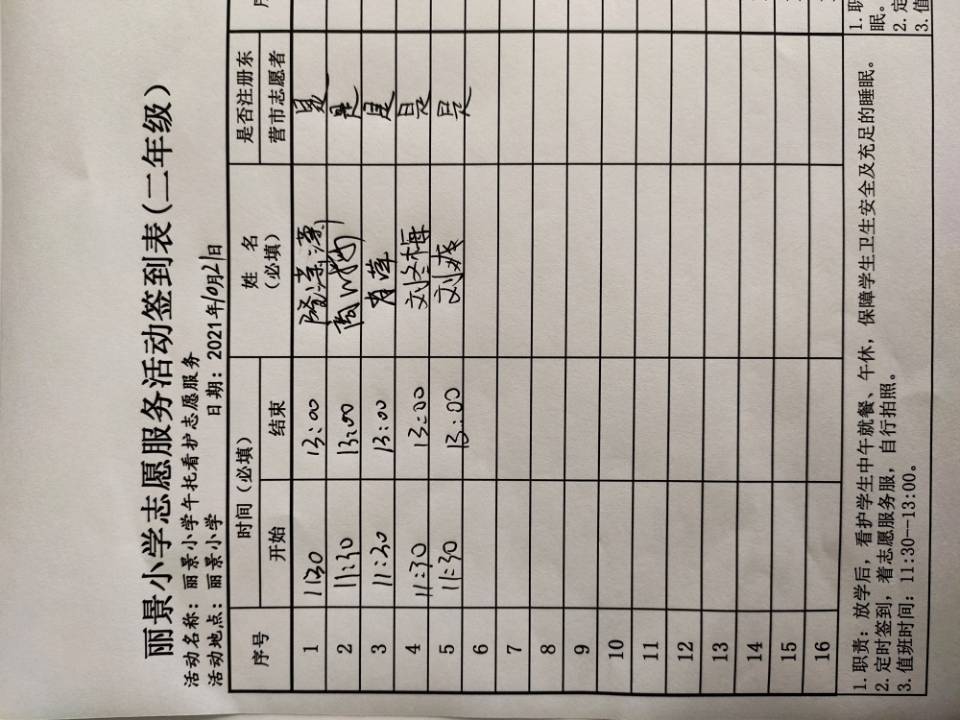 丽景小学志愿服务活动签到表(二年级)
活动名称：丽景小学午托看护志愿服务
活动地点：丽景小学 日期：2021年10月21日
序号 时间(必填) 姓名(必填) 是否注册东营市志愿者
开始 结束
1 1130 13:00 是
2 11:30 13:00 是
3 11:30 13:00 是
4 11:30 13:00 刘冬梅 是
5 11:30 13:00 刘爽 是
6
7
8
9
10
11
12
13
14
15
16
1. 职责：放学后，看护学生中午就餐、午休，保障学生卫生安全及充足的睡眠。
2. 定时签到，着志愿服务服，自行拍照。
3. 值班时间：11:30--13:00。
1. 职
眠。
2. 定
3. 值